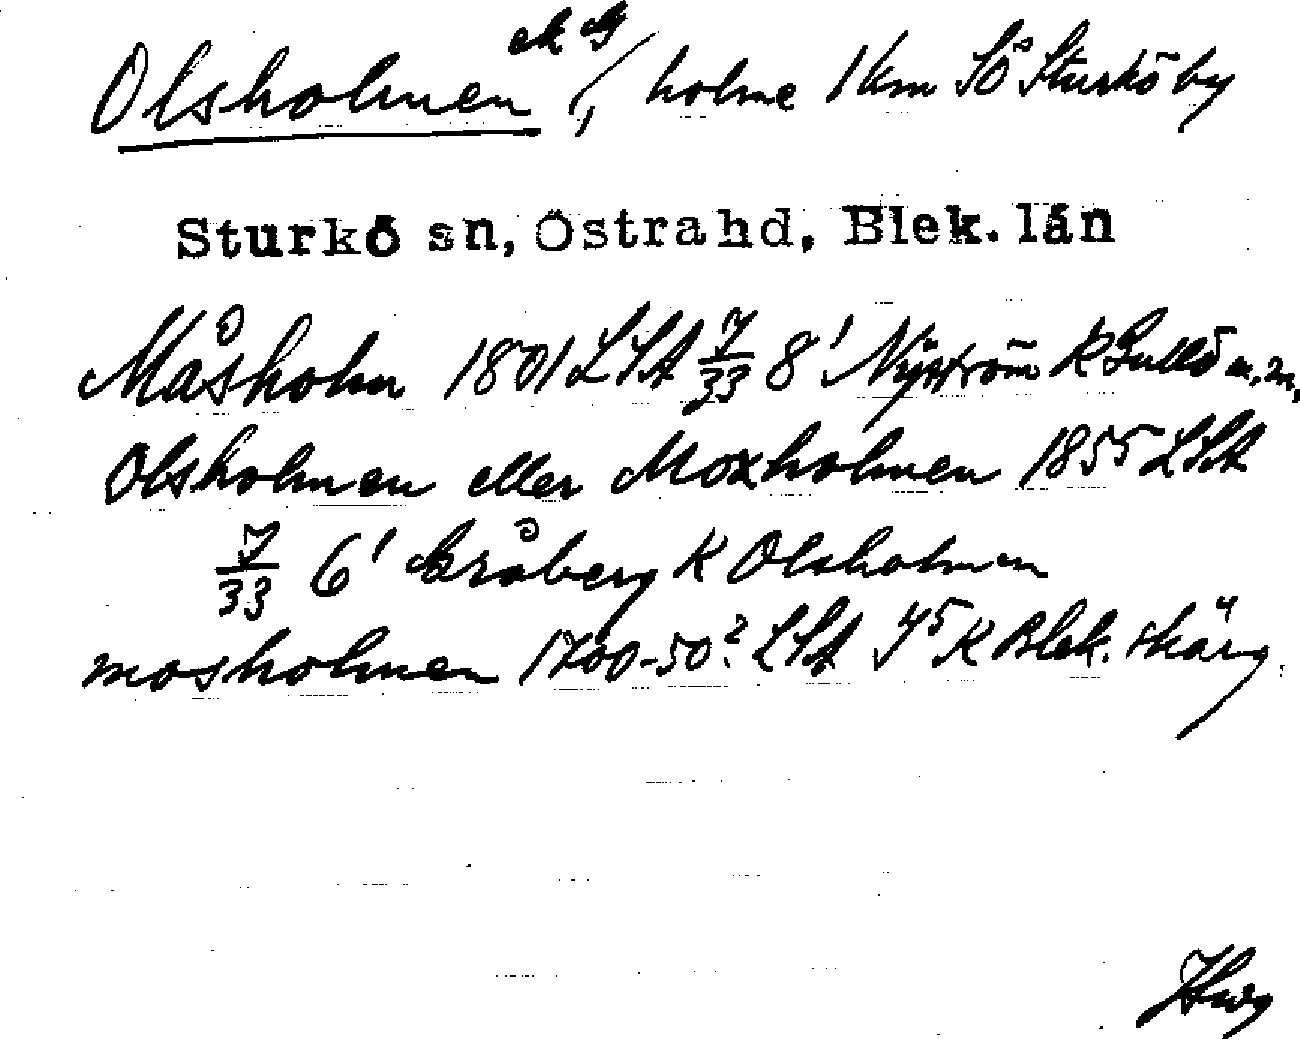 Olsholmen ek G /, holme 1 km SÖ Sturkö by
Sturkö sn, Östra hd, Blek. län
Måsholm 1801 LSA 7/33 8' Nyström K Gullö m.m.
Olsholmen eller Moxholmen 1855 LSA
7/33 6' Gråberg K Olsholmen
mosholmen 1700-50? LSA Y5 K Blek. skärg.